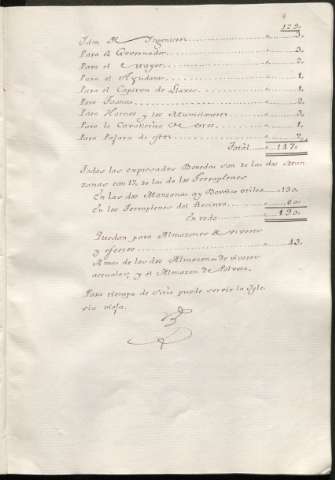 122.
Para el Governador 3.
Para el Mayor 2.
Para el Ayudante 1.
Para el Capitan de Llaves 1.
Para
Para Hornos y sus Municiones 2.
Para la Cavalleriza 1.
Para 2.
Total 137.
Todas las expresadas Bovedas son de las dos Man-
zanas con 17. de las de los Terraplenes
En las dos Manzanas ay Bovedas utiles 130.
En los Terraplenes del Recinto 60.
En todo 190.
Quedan para Almazenes de viveres
y efectos 43.
A mas de los dos Almazenes de viveres
actuales, y el Almazen de Polvora.
Para tiempo de sitio puede servir la Igle-
sia vieja.